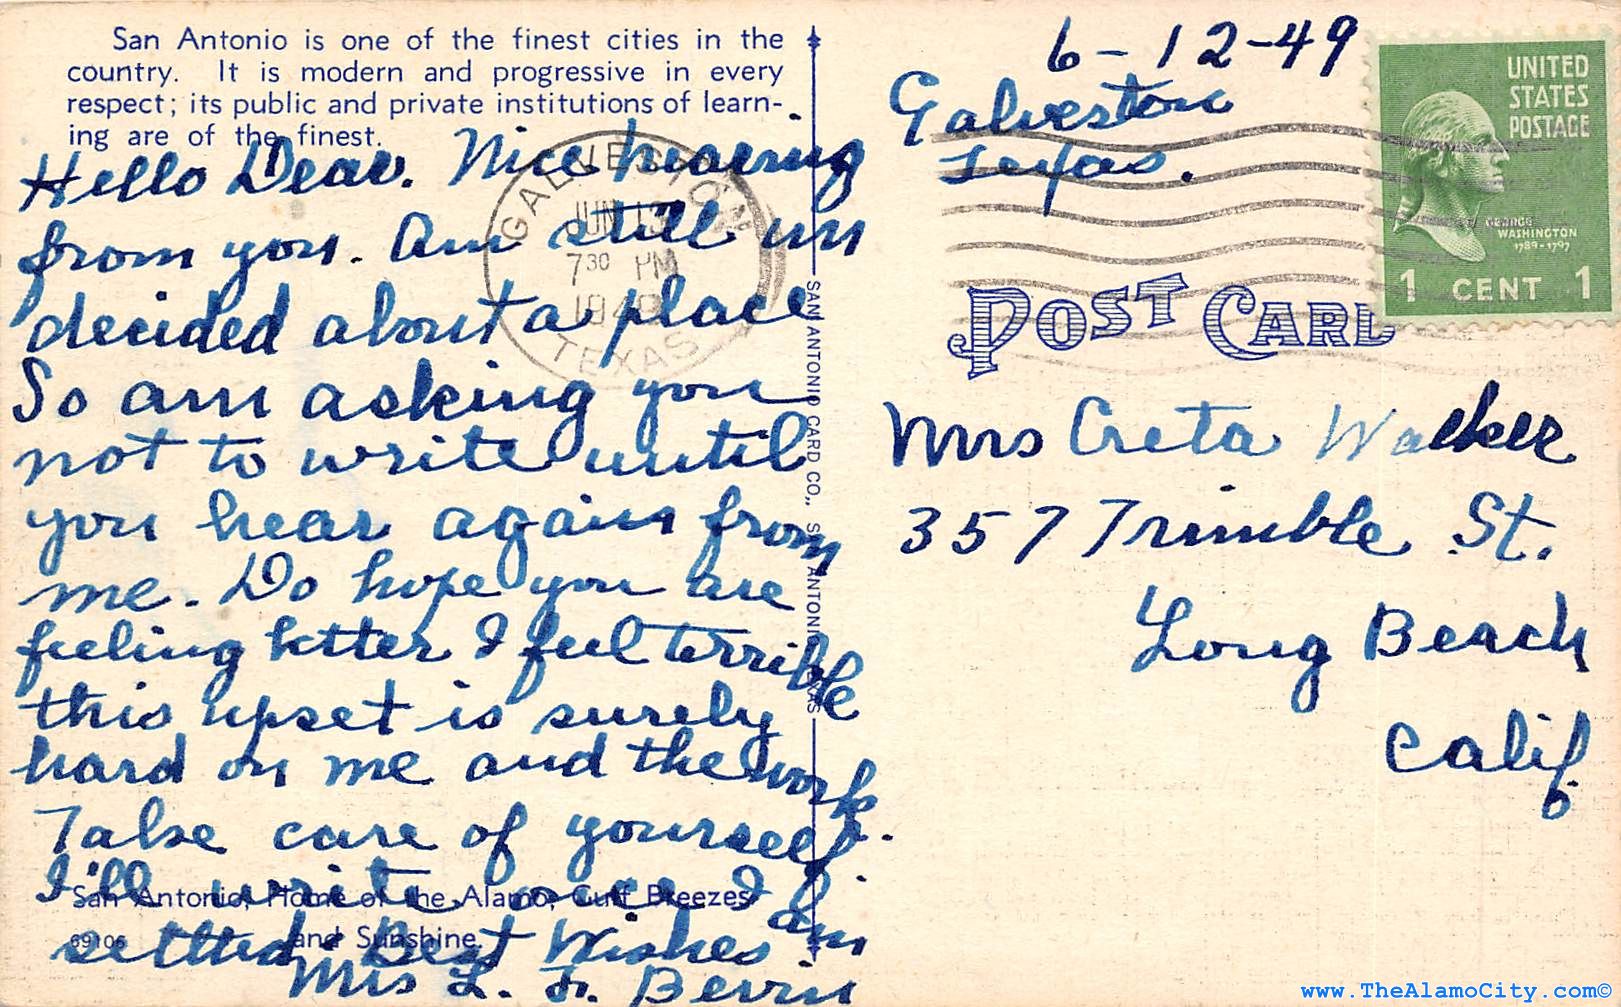 San Antonio is one of the finest cities in the
country. It is modern and progressive in every
respect; its public and private institutions of learn-
ing are of the finest.
Hello Dear. Nice hearing
from you. Am still un
decided about a place
So am asking you
not to write until
you hear again from
me. Do hope you are
feeling better I feel terrible
this upset is surely
hard on me and the work.
Take care of yourself.
I'll write once I am
settled. Best Wishes
Mrs L. Berrin
San Antonio, Home of the Alamo, Gulf Breezes
and Sunshine.
69106
GALVESTON
JUN 13
7 30 PM
1949
TEXAS
SAN ANTONIO CARD CO., SAN ANTONIO, TEXAS
6-12-49
Galveston
Texas.
UNITED
STATES
POSTAGE
GEORGE
WASHINGTON
1789-1797
1 CENT 1
POST CARD
Mrs Creta Walker
357 Trimble St.
Long Beach
Calif.
www.TheAlamoCity.com©